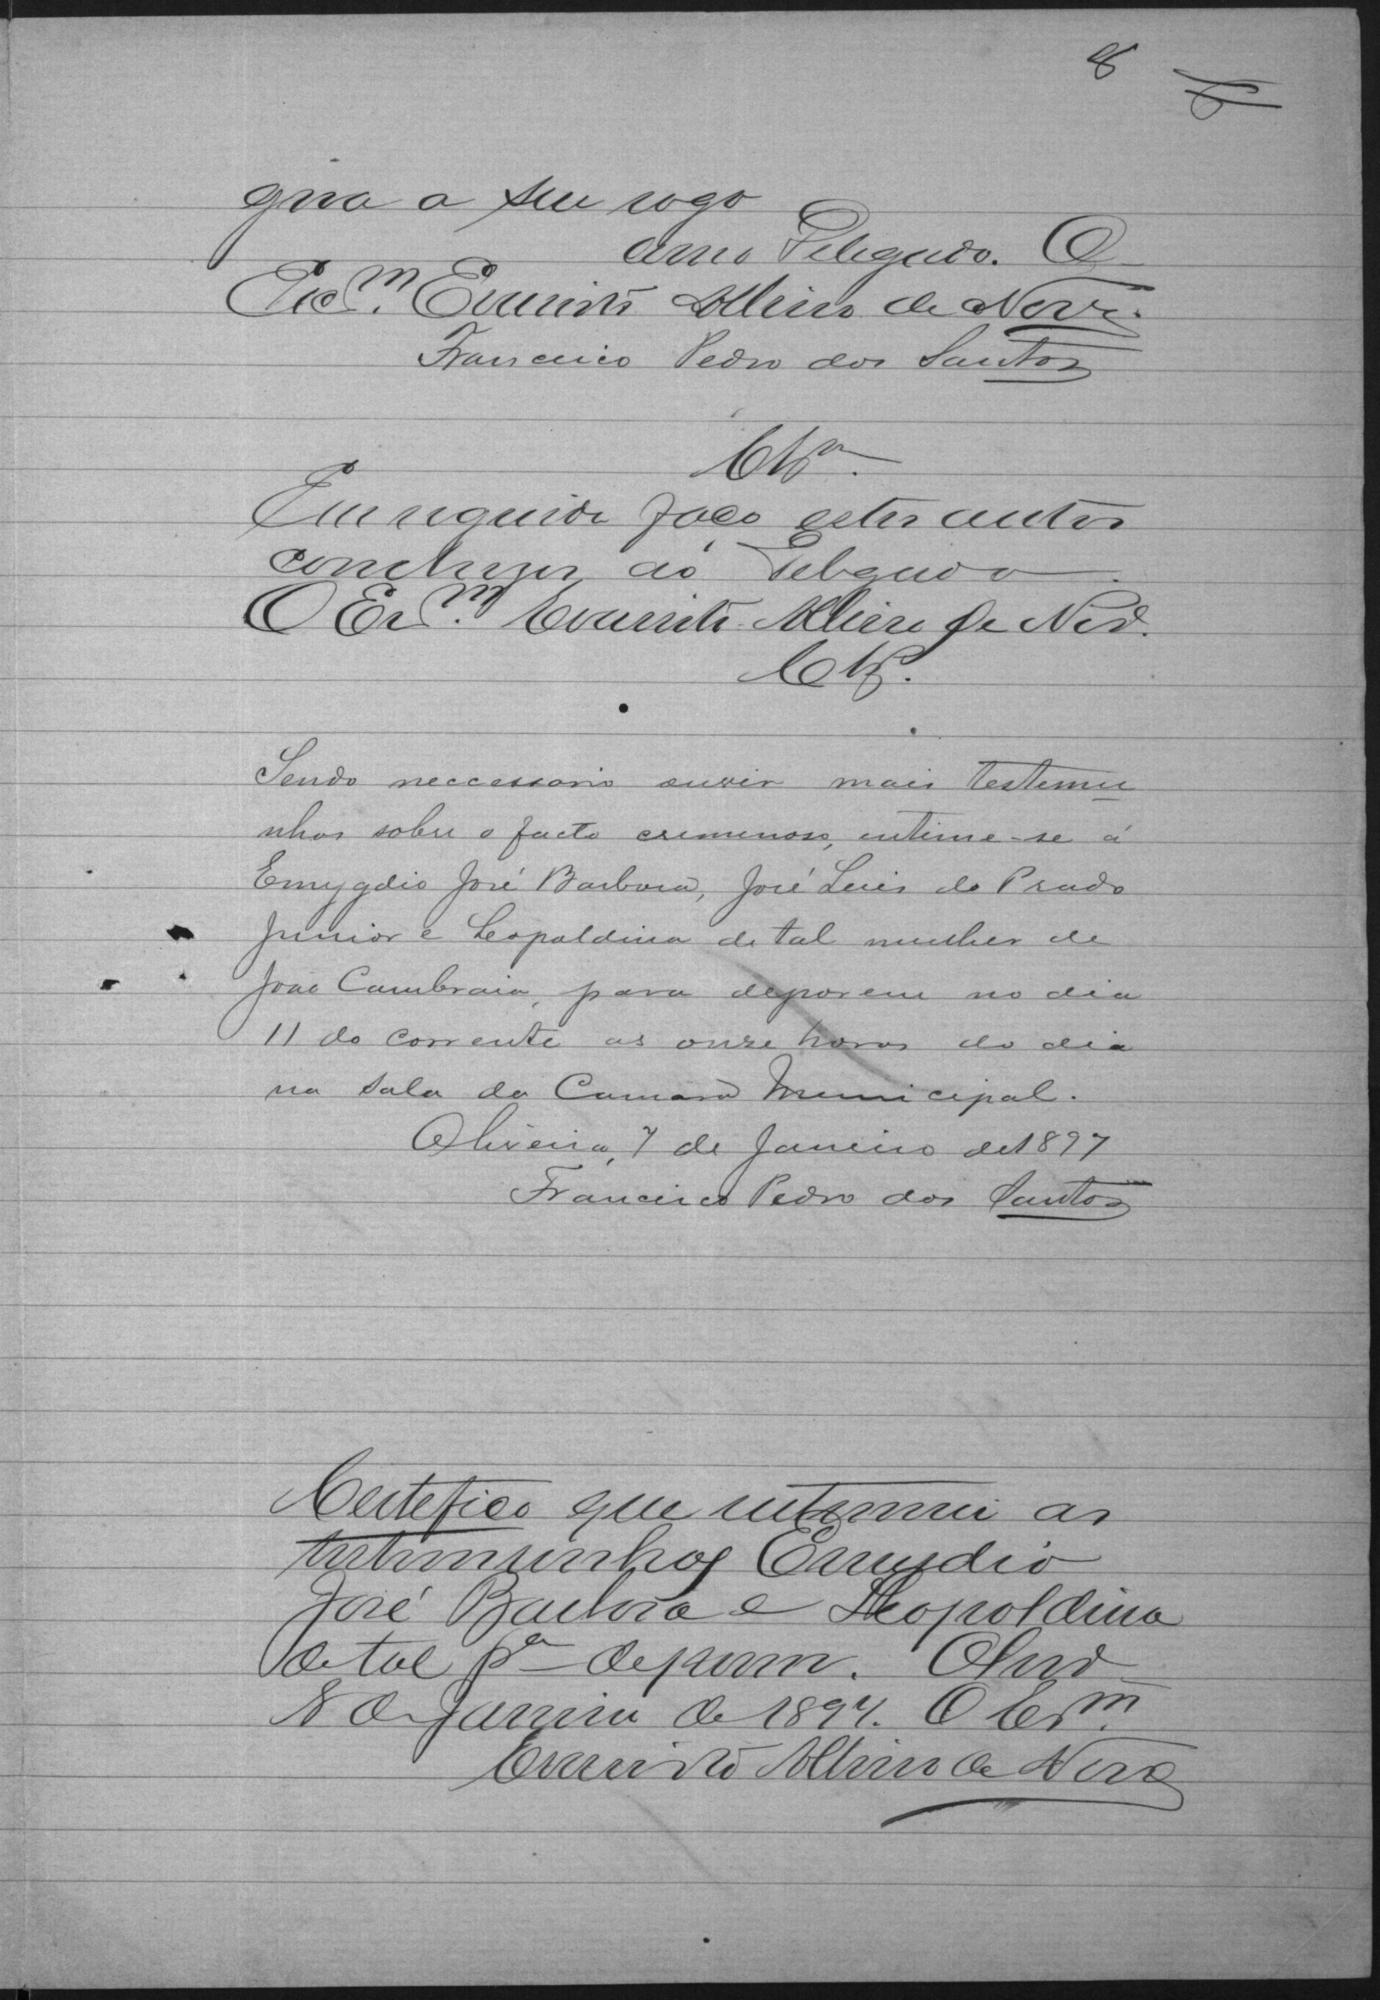 8
gna a seu rogo
como Delegado. O
Escm. Evaristo Albino de Nov.
Francisco Pedro dos Santos
Clsm.
Em seguida faço estes autos
conclusos ao Delegado.
O Escm. Evaristo Albino de Nov.
Cls.
Sendo neccessario ouvir mais testemu
nhas sobre o facto creminoso, intime-se á
Emygdio José Barbosa, José Luis do Prado
Junior e Leopoldina de tal mulher de
João Cambraia, para deporem no dia
11 do corrente as onze horas do dia
na sala da Camara Municipal.
Oliveira, 7 de Janeiro de 1897
Francisco Pedro dos Santos
Certefico que intimei as
testimunhas Emydio
José Barbosa e Leopoldina
de tal pa deporem. Olivra
8 de Janeiro de 1897. O Escm.
Evaristo Albino de